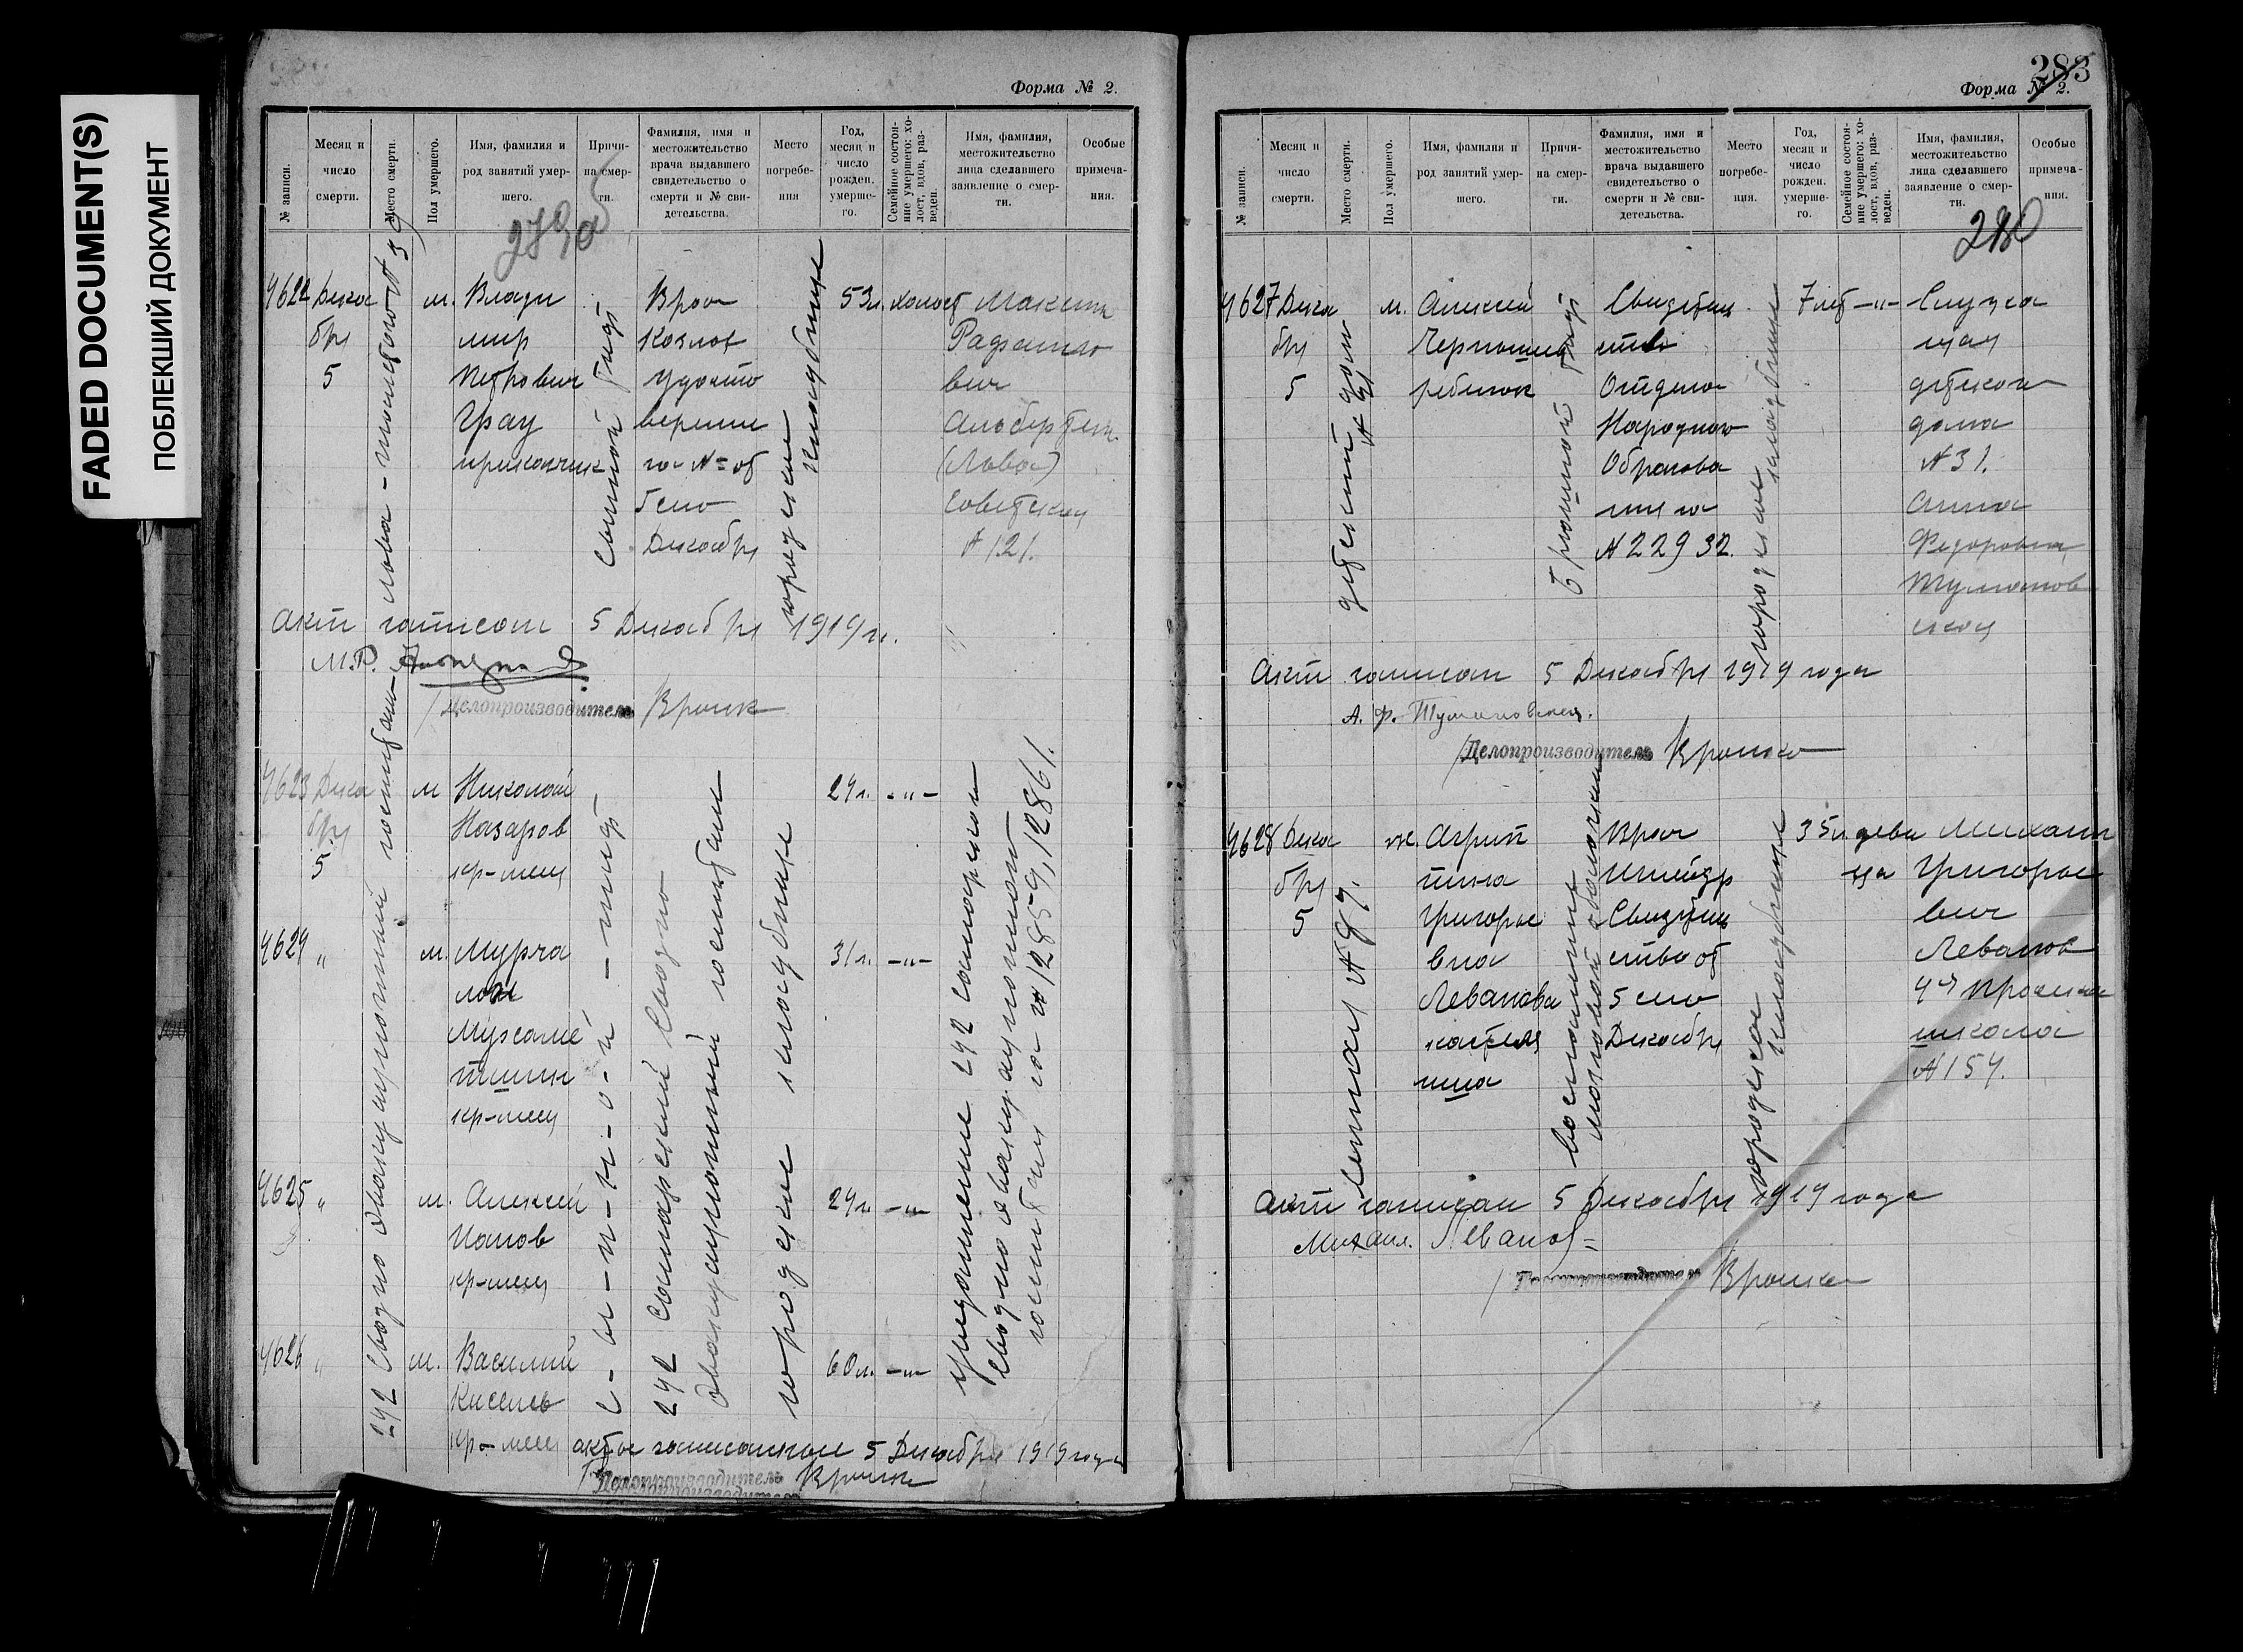 FADED DOCUMENT(S)
ПОБЛЕКШИЙ ДОКУМЕНТ
Форма № 2.
№ записи.
Месяц и число смерти.
Место смерти.
Пол умершего.
Имя, фамилия и род занятий умершего.
Причина смерти.
Фамилия, имя и местожительство врача выдавшего свидетельство о смерти и № свидетельства.
Место погребения
Год, месяц и число рожден. умершего.
Семейное состояние умершего: холост, вдов, разведен.
Имя, фамилия, местожительство лица сделавшего заявление о смерти.
Особые примечания.
279об
4622 Декабря 5
м.
Влади
мир
Петрович
Грау
приказчик
Сыпной тиф
Врач
Козлов
удосто
верение
за № от
5 сего
Декабря
городское кладбище
53 л. холост
Максим
Рафаило
вич
Альберт
(Льва)
Советская
№ 121.
Акт записан 5 Декабря 1919 г.
Делопроизводитель
4623 Декабря 5
м
Николай
Назаров
кр-мец
24 л. -"-
4624 "
м.
31 л. -"-
кр-мец
4625 "
м. Алексей
Попов
кр-мец
24 л. -"-
4626 "
м. Василий
Киселев
кр-мец
60 л. -"-
242 Сводно Эвакуационный госпиталь
с-ы-п-н-о-й - тиф -
242 Самарский Сводно
Эвакуационный госпиталь
городское кладбище
уведомление 242 Самарского
Сводно эвакуационного
госпиталя за № 12859, 12861.
акты записаны 5 Декабря 1919 года
Делопроизводитель
283
Форма № 2.
№ записи.
Месяц и число смерти.
Место смерти.
Пол умершего.
Имя, фамилия и род занятий умершего.
Причина смерти.
Фамилия, имя и местожительство врача выдавшего свидетельство о смерти и № свидетельства.
Место погребения.
Год, месяц и число рожден. умершего.
Семейное состояние умершего: холост, вдов, разведен.
Имя, фамилия, местожительство лица сделавшего заявление о смерти.
Особые примечания.
280
4627 Декабря 5
детский дом
м. Алексей
Чернышев
ребенок
Брюшной тиф
Свидетель
ство
Отдела
Народного
Образова
ния за
№ 22932.
городское кладбище
7 лет -"-
Служа
щая
детского
дома
№ 31.
Анна
Федоровна
Тумановс
кая
Акт записан 5 Декабря 1919 года
А. Ф. Тумановская.
Делопроизводитель
4628 Декабря 5
ж. Агрип
пина
Григорье
вна
Леванова
воспаление мозговой оболочки
Врач
Свидетель
ство от
5 сего
Декабря
городское кладбище
35 л. девица
Михаил
Григорье
вич
Леванов
школа
№ 154.
Акт записан 5 Декабря 1919 года
Михаил Леванов